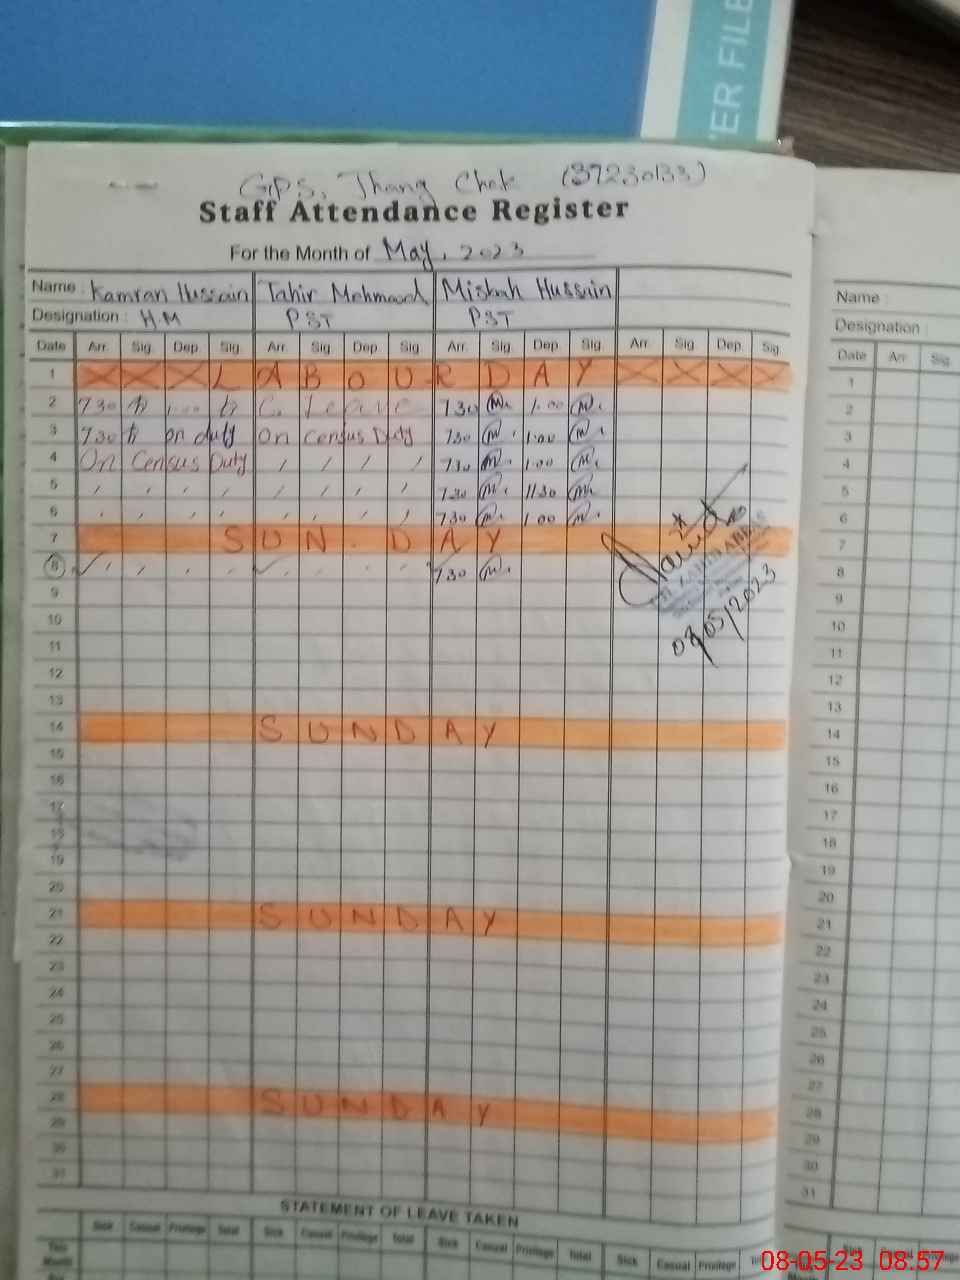 TER FILE
GPS, Jhang Chak (37230133)
Staff Attendance Register
For the Month of May, 2023
Name : Kamran Hussain Tahir Mehmood Misbah Hussain
Designation : H.M PST PST
Date Arr. Sig. Dep. Sig. Arr. Sig. Dep. Sig. Arr. Sig. Dep. Sig. Arr. Sig. Dep. Sig.
1 X X X L A B O U R D A Y X X X X
2 730 1.00 C. Leave 730 1.00
3 730 on duty On Census Duty 730 1.00
4 On Census Duty / / / / 730 1.00
5 / / / / / / / / 730 1130
6 / / / / / / / / 730 1.00
7 S U N . D A Y
8 730
9
10
11
12
13
14 S U N D A Y
15
16
17
18
19
20
21 S U N D A Y
22
23
24
25
26
27
28 S U N D A Y
29
30
31
08/05/2023
STATEMENT OF LEAVE TAKEN
Sick Casual Privilege Total Sick Casual Privilege Total Sick Casual Privilege Total Sick Casual Privilege
This Month
Name :
Designation :
Date Arr. Sig.
1
2
3
4
5
6
7
8
9
10
11
12
13
14
15
16
17
18
19
20
21
22
23
24
25
26
27
28
29
30
31
Sick Casual Privilege
08-05-23 08:57